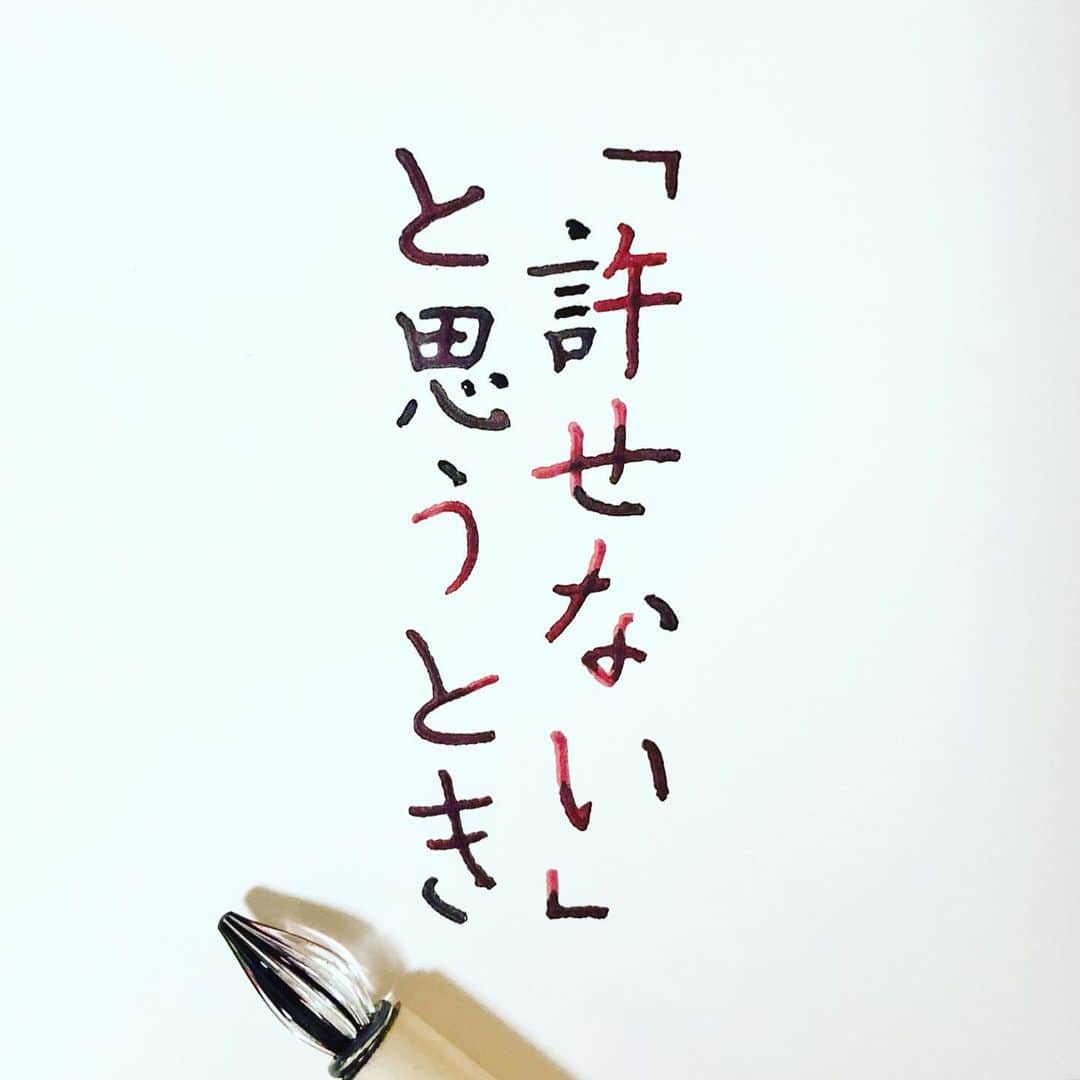 「許せない」
と思うとき